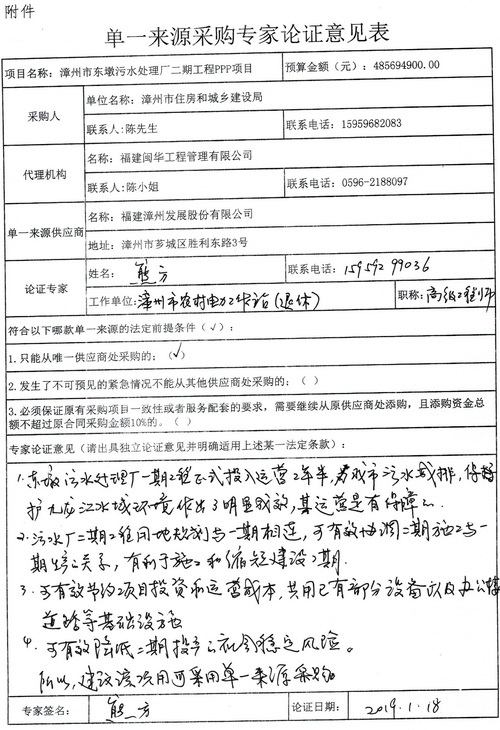 附件
单一来源采购专家论证意见表
项目名称：漳州市东墩污水处理厂二期工程PPP项目 预算金额（元）：485694900.00
采购人 单位名称：漳州市住房和城乡建设局
联系人：陈先生 联系电话：15959682083
代理机构 名称：福建闽华工程管理有限公司
联系人：陈小姐 联系电话：0596-2188097
单一来源供应商 名称：福建漳州发展股份有限公司
地址：漳州市芗城区胜利东路3号
论证专家 姓名：熊一方 联系电话：15959299036
工作单位：漳州市农村电力工作站（退休） 职称：高级工程师
符合以下哪款单一来源的法定前提条件（√）：
1.只能从唯一供应商处采购的；（√）
2.发生了不可预见的紧急情况不能从其他供应商处采购的；（ ）
3.必须保证原有采购项目一致性或者服务配套的要求，需要继续从原供应商处添购，且添购资金总
额不超过原合同采购金额10%的。（ ）
专家论证意见（请出具独立论证意见并明确适用上述某一法定条款）：
1.东墩污水处理厂一期工程正式投入运营2年半，为城市污水减排，保
护九龙江水域环境作出了明显成效，其运营是有保障的。
2.污水厂二期工程用地规划与一期相连，可有效协调二期施工与一
期生产关系，有利于施工和缩短建设工期。
3.可有效节约项目投资和运营成本，共用已有部分设备以及办公楼
道路等基础设施
4.可有效降低二期投产的社会稳定风险。
所以，建议该项目可采用单一来源采购
专家签名： 熊一方 论证日期： 2019.1.18